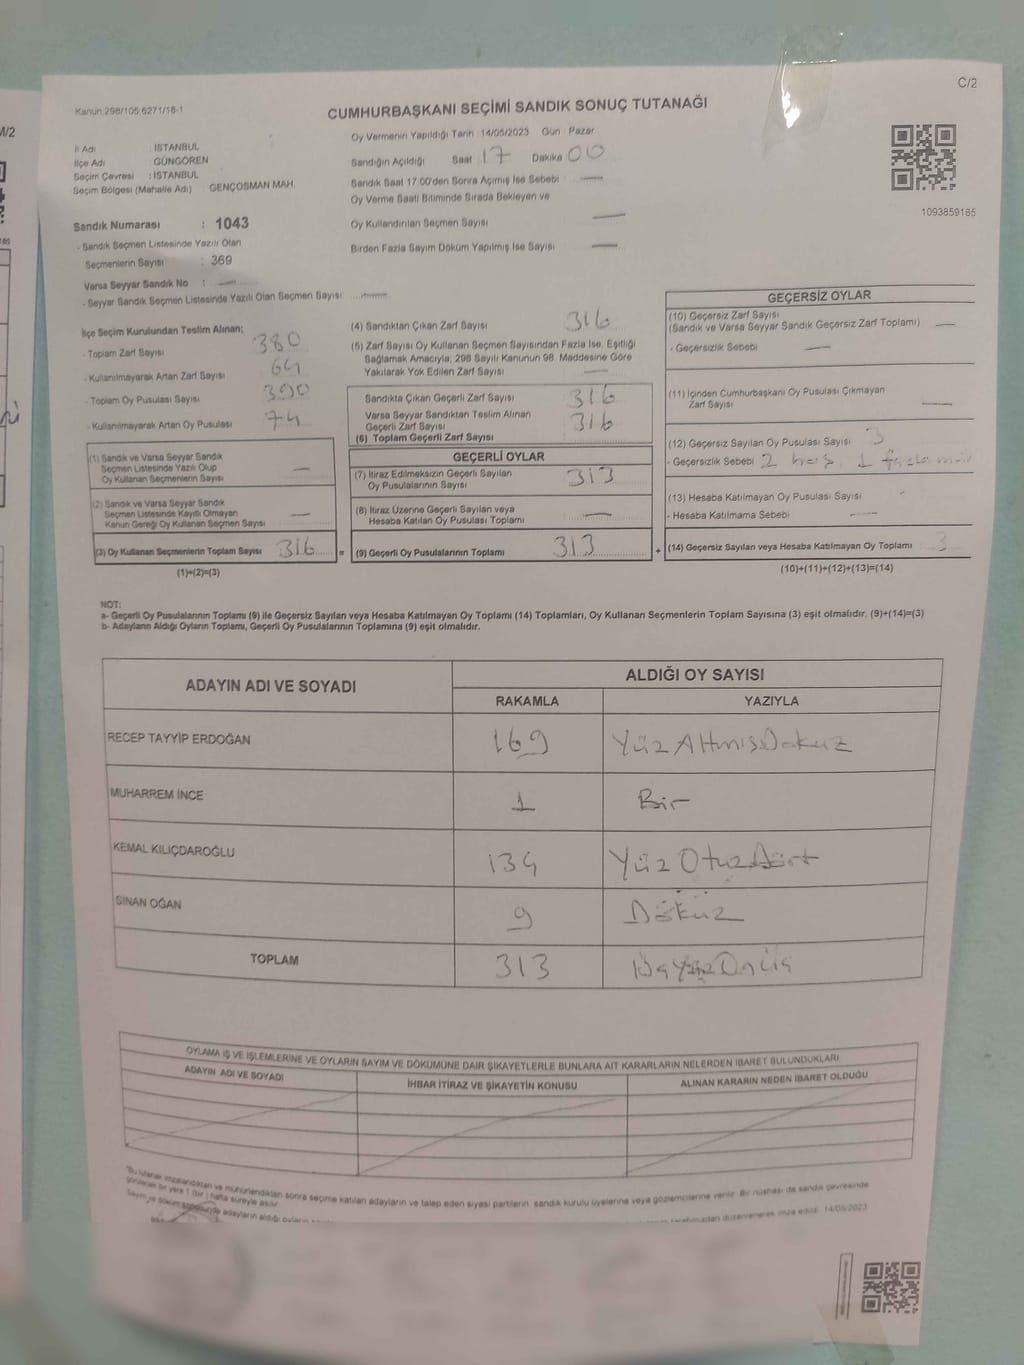 C/2
Kanun:298/105;6271/16-1
CUMHURBAŞKANI SEÇİMİ SANDIK SONUÇ TUTANAĞI
İl Adı İSTANBUL
İlçe Adı : GÜNGÖREN
Seçim Çevresi : İSTANBUL
Seçim Bölgesi (Mahalle Adı) GENÇOSMAN MAH.
Oy Vermenin Yapıldığı Tarih : 14/05/2023 Gün : Pazar
Sandığın Açıldığı Saat 17 Dakika 00
Sandık Saat 17:00'den Sonra Açımış İse Sebebi —
Oy Verme Saati Bitiminde Sırada Bekleyen ve
Oy Kullandırılan Seçmen Sayısı —
Birden Fazla Sayım Döküm Yapılmış İse Sayısı —
1093859185
Sandık Numarası : 1043
- Sandık Seçmen Listesinde Yazılı Olan
Seçmenlerin Sayısı : 369
Varsa Seyyar Sandık No : —
- Seyyar Sandık Seçmen Listesinde Yazılı Olan Seçmen Sayısı : —
İlçe Seçim Kurulundan Teslim Alınan;
- Toplam Zarf Sayısı 380
- Kullanılmayarak Artan Zarf Sayısı 64
- Toplam Oy Pusulası Sayısı 390
- Kullanılmayarak Artan Oy Pusulası 74
(1) Sandık ve Varsa Seyyar Sandık
Seçmen Listesinde Yazılı Olup
Oy Kullanan Seçmenlerin Sayısı —
(2) Sandık ve Varsa Seyyar Sandık
Seçmen Listesinde Kayıtlı Olmayan
Kanun Gereği Oy Kullanan Seçmen Sayısı —
(3) Oy Kullanan Seçmenlerin Toplam Sayısı 316 =
(1)+(2)=(3)
(4) Sandıktan Çıkan Zarf Sayısı 316
(5) Zarf Sayısı Oy Kullanan Seçmen Sayısından Fazla İse, Eşitliği
Sağlamak Amacıyla; 298 Sayılı Kanunun 98. Maddesine Göre
Yakılarak Yok Edilen Zarf Sayısı —
Sandıkta Çıkan Geçerli Zarf Sayısı 316
Varsa Seyyar Sandıktan Teslim Alınan
Geçerli Zarf Sayısı 316
(6) Toplam Geçerli Zarf Sayısı
GEÇERLİ OYLAR
(7) İtiraz Edilmeksizin Geçerli Sayılan
Oy Pusulalarının Sayısı 313
(8) İtiraz Üzerine Geçerli Sayılan veya
Hesaba Katılan Oy Pusulası Toplamı —
(9) Geçerli Oy Pusulalarının Toplamı 313 +
GEÇERSİZ OYLAR
(10) Geçersiz Zarf Sayısı
(Sandık ve Varsa Seyyar Sandık Geçersiz Zarf Toplamı) —
- Geçersizlik Sebebi —
(11) İçinden Cumhurbaşkanı Oy Pusulası Çıkmayan
Zarf Sayısı —
(12) Geçersiz Sayılan Oy Pusulası Sayısı 3
- Geçersizlik Sebebi 2 boş, 1
(13) Hesaba Katılmayan Oy Pusulası Sayısı -
- Hesaba Katılmama Sebebi —
(14) Geçersiz Sayılan veya Hesaba Katılmayan Oy Toplamı 3
(10)+(11)+(12)+(13)=(14)
NOT:
a- Geçerli Oy Pusulalarının Toplamı (9) ile Geçersiz Sayılan veya Hesaba Katılmayan Oy Toplamı (14) Toplamları, Oy Kullanan Seçmenlerin Toplam Sayısına (3) eşit olmalıdır. (9)+(14)=(3)
b- Adayların Aldığı Oyların Toplamı, Geçerli Oy Pusulalarının Toplamına (9) eşit olmalıdır.
ADAYIN ADI VE SOYADI ALDIĞI OY SAYISI
RAKAMLA YAZIYLA
RECEP TAYYİP ERDOĞAN 169 Yüz Altmış Dokuz
MUHARREM İNCE 1 Bir
KEMAL KILIÇDAROĞLU 134 Yüz Otuz dört
SİNAN OĞAN 9 Dokuz
TOPLAM 313 Üç Yüz On Üç
OYLAMA İŞ VE İŞLEMLERİNE VE OYLARIN SAYIM VE DÖKÜMÜNE DAİR ŞİKAYETLERLE BUNLARA AİT KARARLARIN NELERDEN İBARET BULUNDUKLARI
ADAYIN ADI VE SOYADI İHBAR İTİRAZ VE ŞİKAYETİN KONUSU ALINAN KARARIN NEDEN İBARET OLDUĞU
*Bu tutanak imzalandıktan ve mühürlendikten sonra seçime katılan adayların ve talep eden siyasi partilerin sandık kurulu üyelerine veya gözlemcilerine verilir. Bir nüshası da sandık çevresinde
görülecek bir yere 1 (bir) hafta süreyle asılır.
Sayım ve döküm sonucunda adayların aldığı oyların tarafımızdan düzenlenerek imza edildi. 14/05/2023